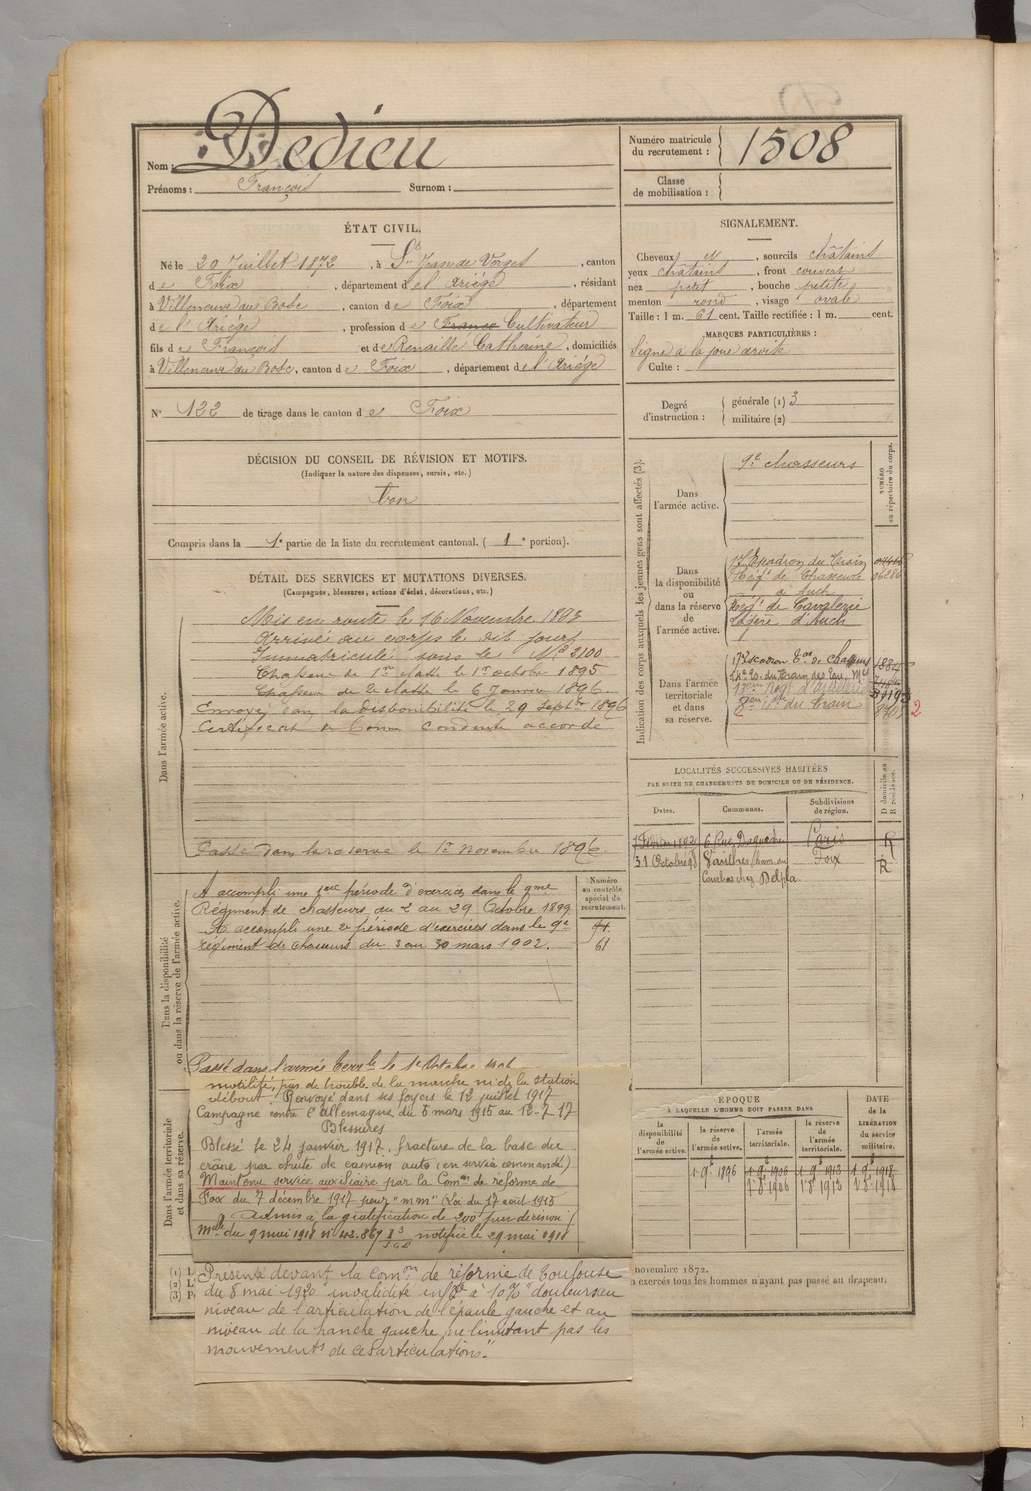 Nom : Dedieu
Prénoms : François Surnom :
Numéro matricule
du recrutement : 1508
Classe
de mobilisation :
ÉTAT CIVIL.
Né le 20 Juillet 1872, à St Jean de Verges, canton
de Foix, département de l'Ariége, résidant
à Villeneuve du Bosc, canton de Foix, département
de l'Ariége, profession de Cultivateur
fils de François et de Catherine, domiciliés
à Villeneuve du Bosc, canton de Foix, département de l'Ariége
N° 122 de tirage dans le canton de Foix
DÉCISION DU CONSEIL DE RÉVISION ET MOTIFS.
(Indiquer la nature des dispenses, sursis, etc.)
bon
Compris dans la 1e partie de la liste du recrutement cantonal. ( 1e portion).
DÉTAIL DES SERVICES ET MUTATIONS DIVERSES.
(Campagnes, blessures, actions d'éclat, décorations, etc.)
Dans l'armée active.
Mis en route le 16 Novembre 1893
Arrivé au corps le dit jour
Immatriculé sous le No 3100
Chasseur de 1re classe le 1er octobre 1895
Chasseur de 2e classe le 6 Janvier 1896
Envoyé dans la disponibilité le 29 Septbre 1896
Certificat de bonne conduite accordé
Passé dans la réserve le 1er Novembre 1896.
Dans la disponibilité
ou dans la réserve de l'armée active.
Numéro
au contrôle
spécial du
recrutement.
A accompli une 1ère période d'exercices dans le 9me
Régiment de chasseurs du 2 au 29 Octobre 1899
A accompli une 2e période d'exercices dans le 9e
régiment de chasseurs du 3 au 30 mars 1902.
61
Passé dans l'armée terrle le 1er Octobre
Dans l'armée territoriale
et dans sa réserve.
motilité, pas de trouble de la marche ni de la station
debout. Renvoyé dans ses foyers le 12 juillet 1917
Campagne contre l'Allemagne du 5 mars 1915 au 12-7-17
Blessures
Blessé le 24 janvier 1917, fracture de la base du
crâne par chute de camion auto (en service commandé)
Maintenu service auxiliaire par la Comon de réforme de
Foix du 7 décembre 1917 pour "mm" (Loi du 17 août 1915
Admis à la gratification de 200f par décision
Mlle du 9 mai 1918 notifiée le 29 mai 1918
Présenté devant la Comon de réforme de Toulouse
du 8 mai 1920 invalidité infre à 10% "douleurs au
niveau de l'articulation de l'épaule gauche et au
niveau de la hanche gauche ne limitant pas les
mouvements de ces articulations."
SIGNALEMENT.
Cheveux et, sourcils châtains
yeux châtains, front couvert
nez petit, bouche petite
menton rond, visage ovale
Taille : 1 m. 61 cent. Taille rectifiée : 1 m. cent.
MARQUES PARTICULIÈRES :
Signe à la joue droite
Culte :
Degré
d'instruction :
générale (1) 3
militaire (2)
Indication des corps auxquels les jeunes gens sont affectés (3).
NUMÉRO
au répertoire du corps.
Dans
l'armée active.
9e chasseurs
Dans
la disponibilité
ou
dans la réserve
de
l'armée active.
17e Escadron du Train
Régt de Chasseurs
à Auch
Régt de Cavalerie
légère d'Auch
Dans l'armée
territoriale
et dans
sa réserve.
17e Escadron de chasseurs
LOCALITÉS SUCCESSIVES HABITÉES
PAR SUITE DE CHANGEMENTS DE DOMICILE OU DE RÉSIDENCE.
Dates.
Communes.
Subdivisions
de région.
D domicile ou
R résidence.
Paris R
Foix R
ÉPOQUE
À LAQUELLE L'HOMME DOIT PASSER DANS
la
disponibilité
de
l'armée active.
la réserve
de
l'armée active.
l'armée
territoriale.
la réserve
de
l'armée
territoriale.
DATE
de la
LIBÉRATION
du service
militaire.
1·9bre 1896 1·9bre 1906 1·9bre 1913 1·9bre 1918
1·8bre 1906 1·8bre 1913 1·8bre 1918
novembre 1872.
exercés tous les hommes n'ayant pas passé au drapeau.
(1)
(2)
(3)